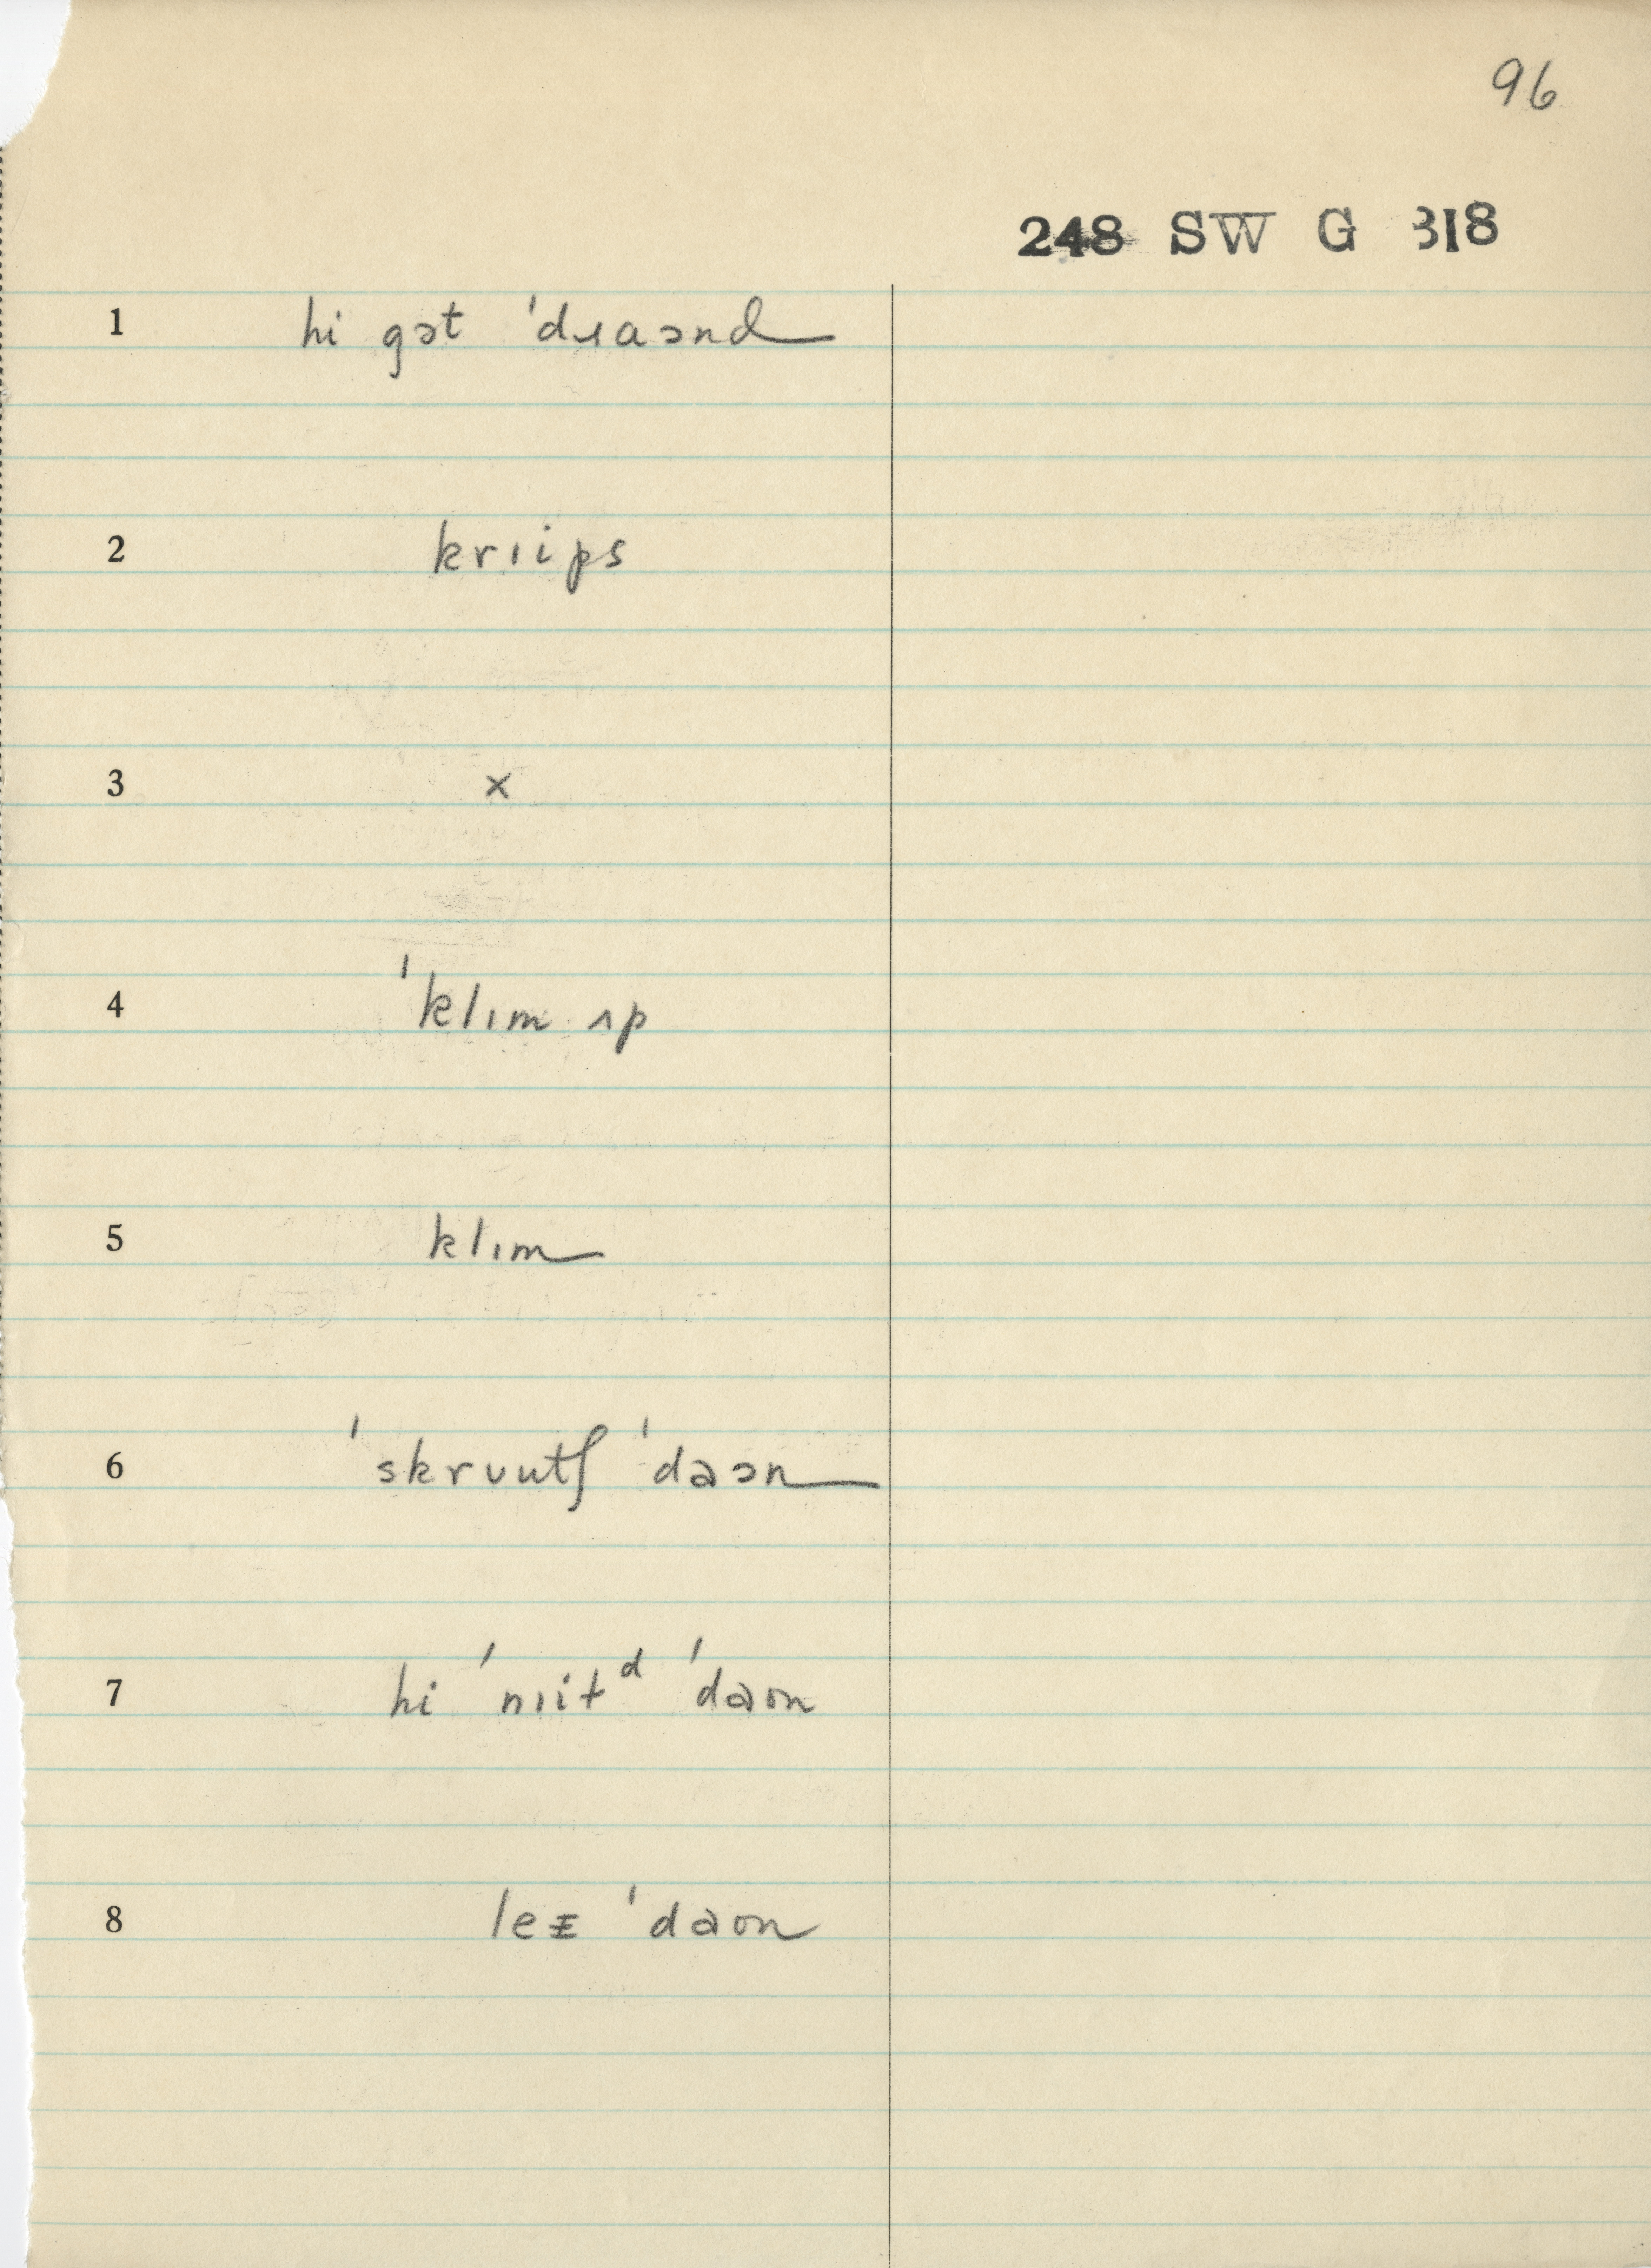 96
248 SW G 318
1 hi gət ˈdɹaənd
2 krɪips
3 x
4 ˈklɪm ʌp
5 klɪm
6 ˈskrʊutʃ ˈdaən
7 hi ˈnɪitᵈ ˈdaʊn
8 leɪ ˈdaʊn